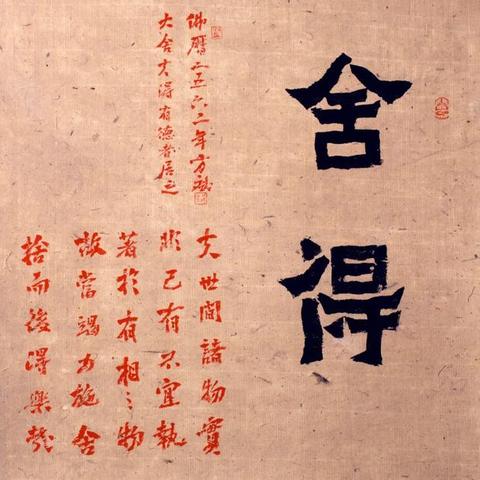 舍得
夫世間諸物實
非己有不宜執
著於有相之物
故當竭力施舍
捨而後得樂
佛曆二五六二年方斌
大舍大得有德者居之